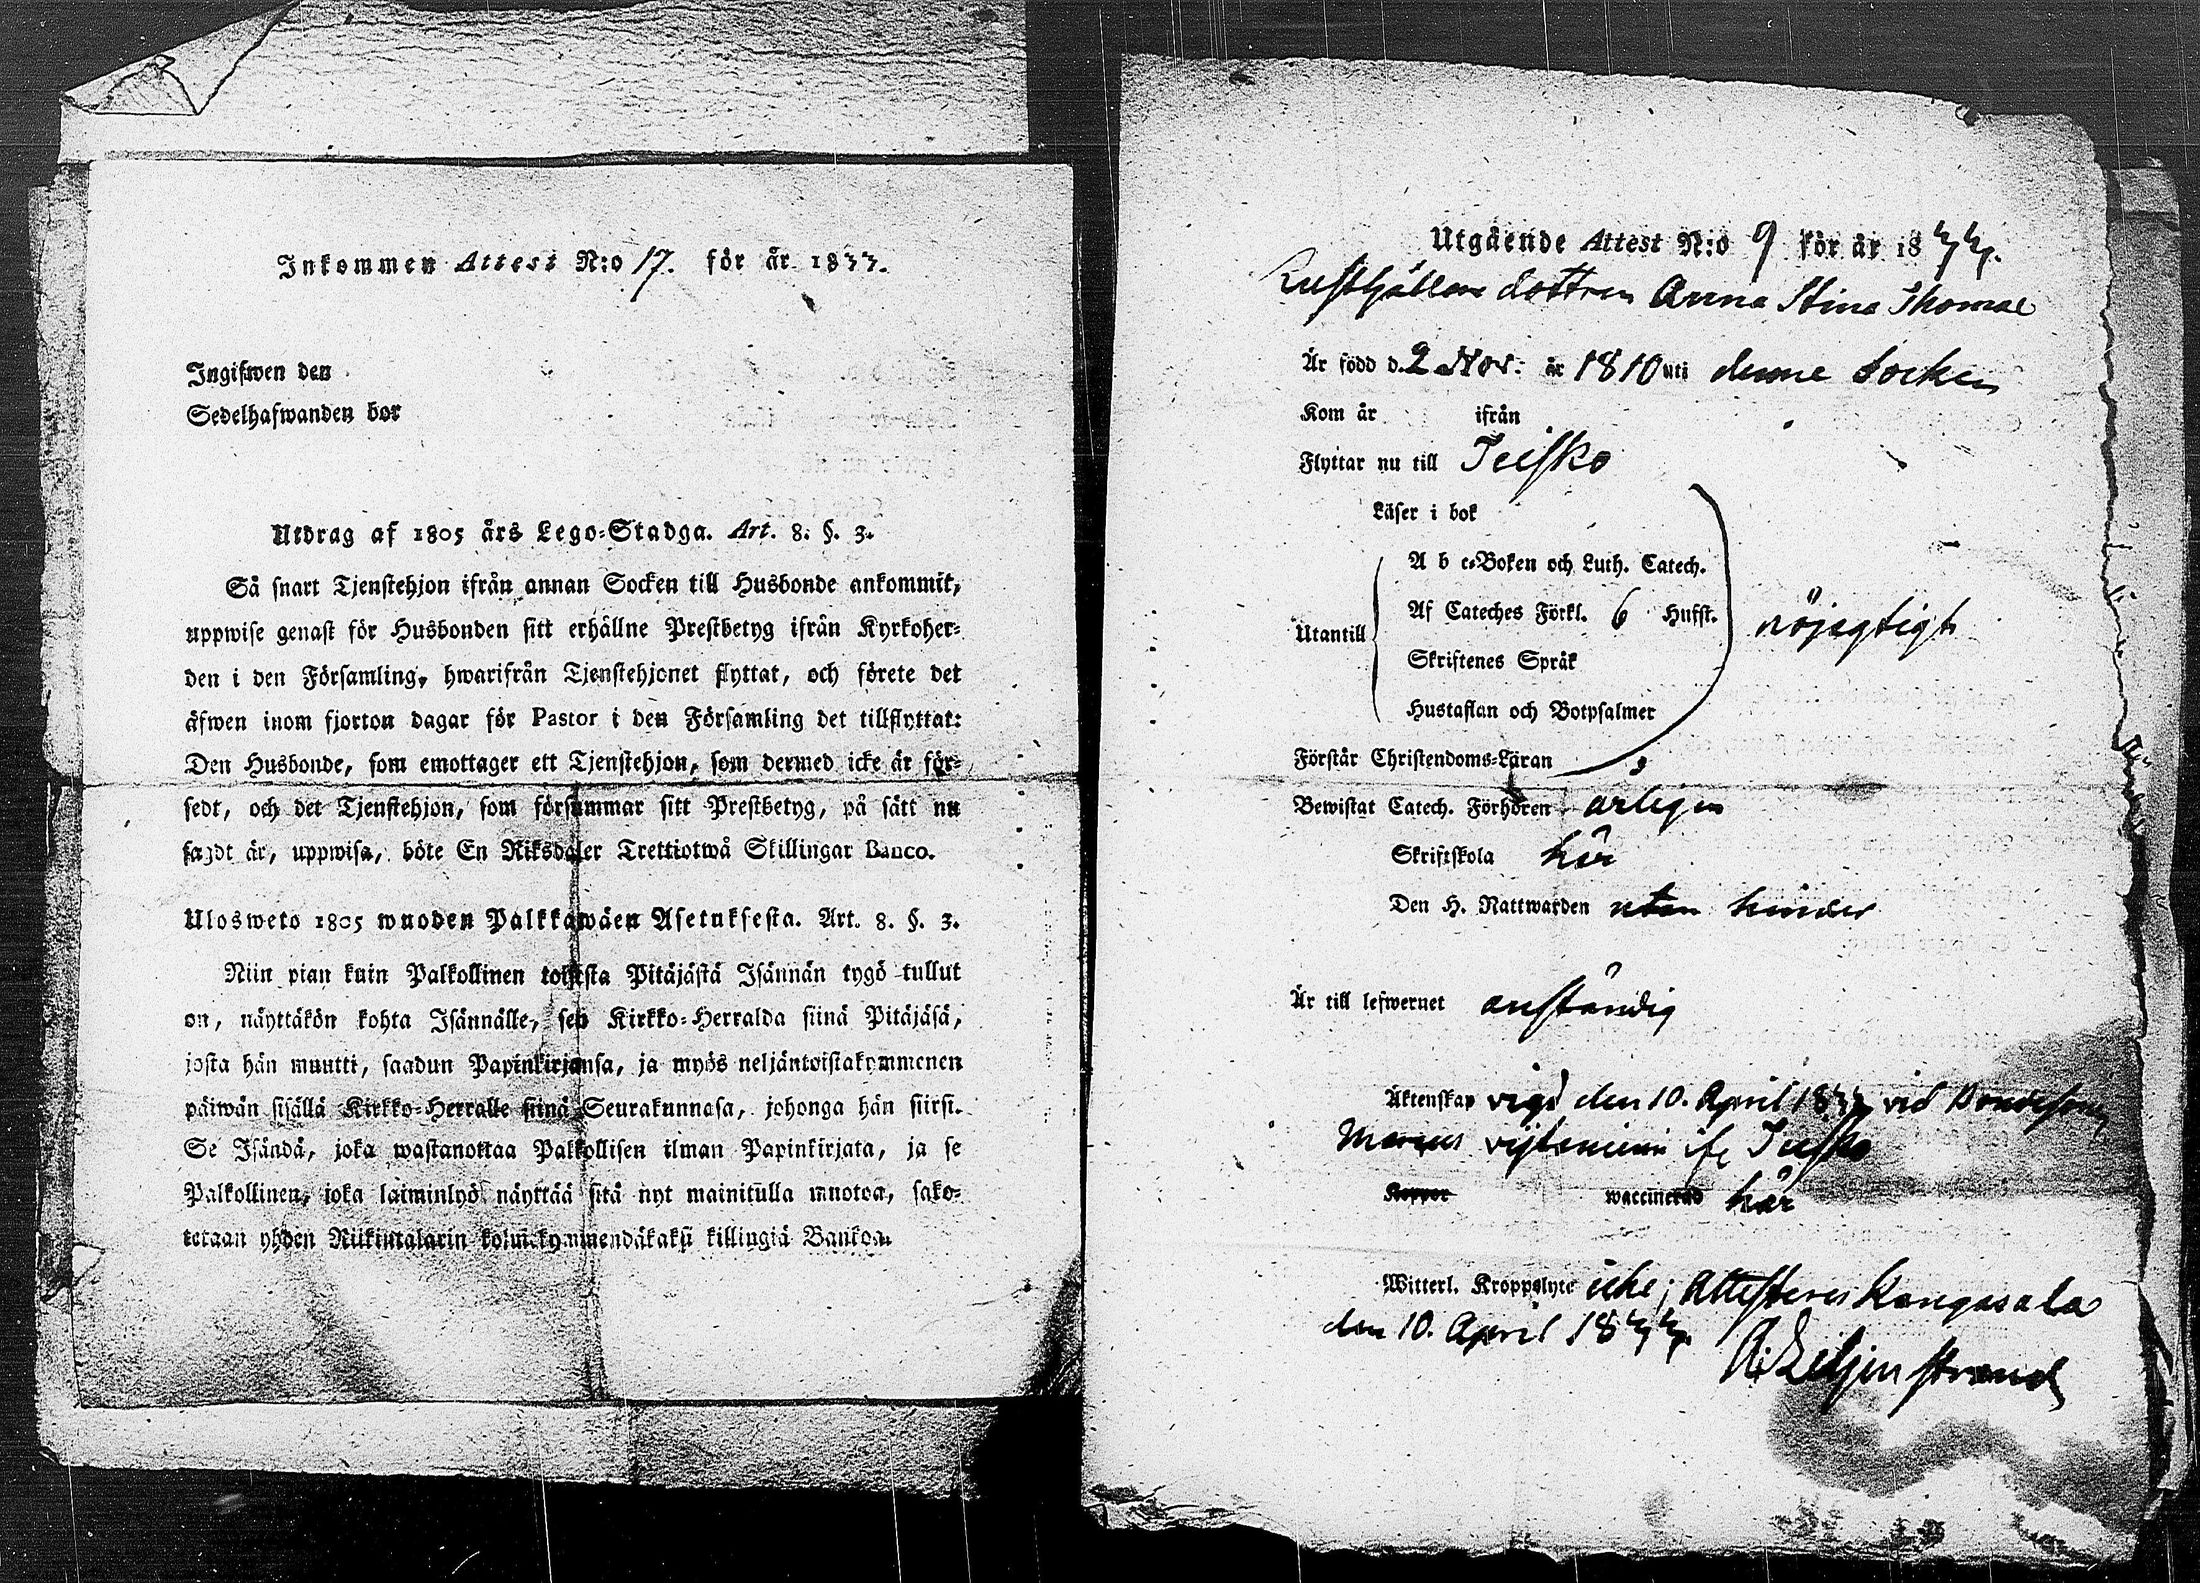 Inkommen Attest N:o 17. för år 1833.
Ingifwen den
Sedelhafwanden bor
Utdrag af 1805 års Lego-Stadga. Art. 8. §. 3.
Så snart Tjenstehjon ifrån annan Socken till Husbonde ankommit,
uppwise genast för Husbonden sitt erhållne Prestbetyg ifrån Kyrkoher-
den i den Församling, hwarifrån Tjenstehjonet flyttat, och förete det
äfwen inom fjorton dagar för Pastor i den Församling det tillflyttat:
Den Husbonde, som emottager ett Tjenstehjon, som dermed icke är för-
sedt, och det Tjenstehjon, som försummar sitt Prestbetyg, på sätt nu
sagdt är, uppwisa, böte En Riksdaler Trettiotwå Skillingar Banco.
Ulosweto 1805 wuoden Palkkawäen Asetuksesta. Art. 8. §. 3.
Niin pian kuin Palkollinen toisesta Pitäjästä Isännän tygö tullut
on, näyttäkön kohta Isännälle, sen Kirkko-Herralda siinä Pitäjäsä,
josta hän muutti, saadun Papinkirjansa, ja myös neljäntoistakymmenen
päiwän sisällä Kirkko-Herralle siinä Seurakunnasa, johonga hän siirsi.
Se Isändä, joka wastanottaa Palkollisen ilman Papinkirjata, ja se
Palkollinen, joka laiminlyö näyttää sitä nyt mainitulla muotoa, sako-
tetaan yhden Riikintalarin kolmekymmendäkaksi killingiä Bankoa.
Utgående Attest N:o 9 för år 1833.
Rusthållare dottren Anna Stina Thomae
Är född d. 2 Nov. år 1810 uti denne Socken
Kom år ifrån
Flyttar nu till Teisko
Läser i bok
A b c-Boken och Luth. Catech.
Af Cateches Förkl. 6 Hufst.
Utantill nöjagtigt
Skriftenes Språk
Hustaflan och Botpsalmer
Förstår Christendoms-Läran
Bewistat Catech. Förhören årligen
Skriftskola här
Den H. Nattwarden utan hinder
Är till lefwernet anständig
Äktenskap vigd den 10. April 1833 vid Bondesonen
Marcus ifr Teisko
Koppor waccinerad här
Witterl. Kroppslyte icke; Attesteres Kangasala
den 10. April 1833.
A: Liljenstrand